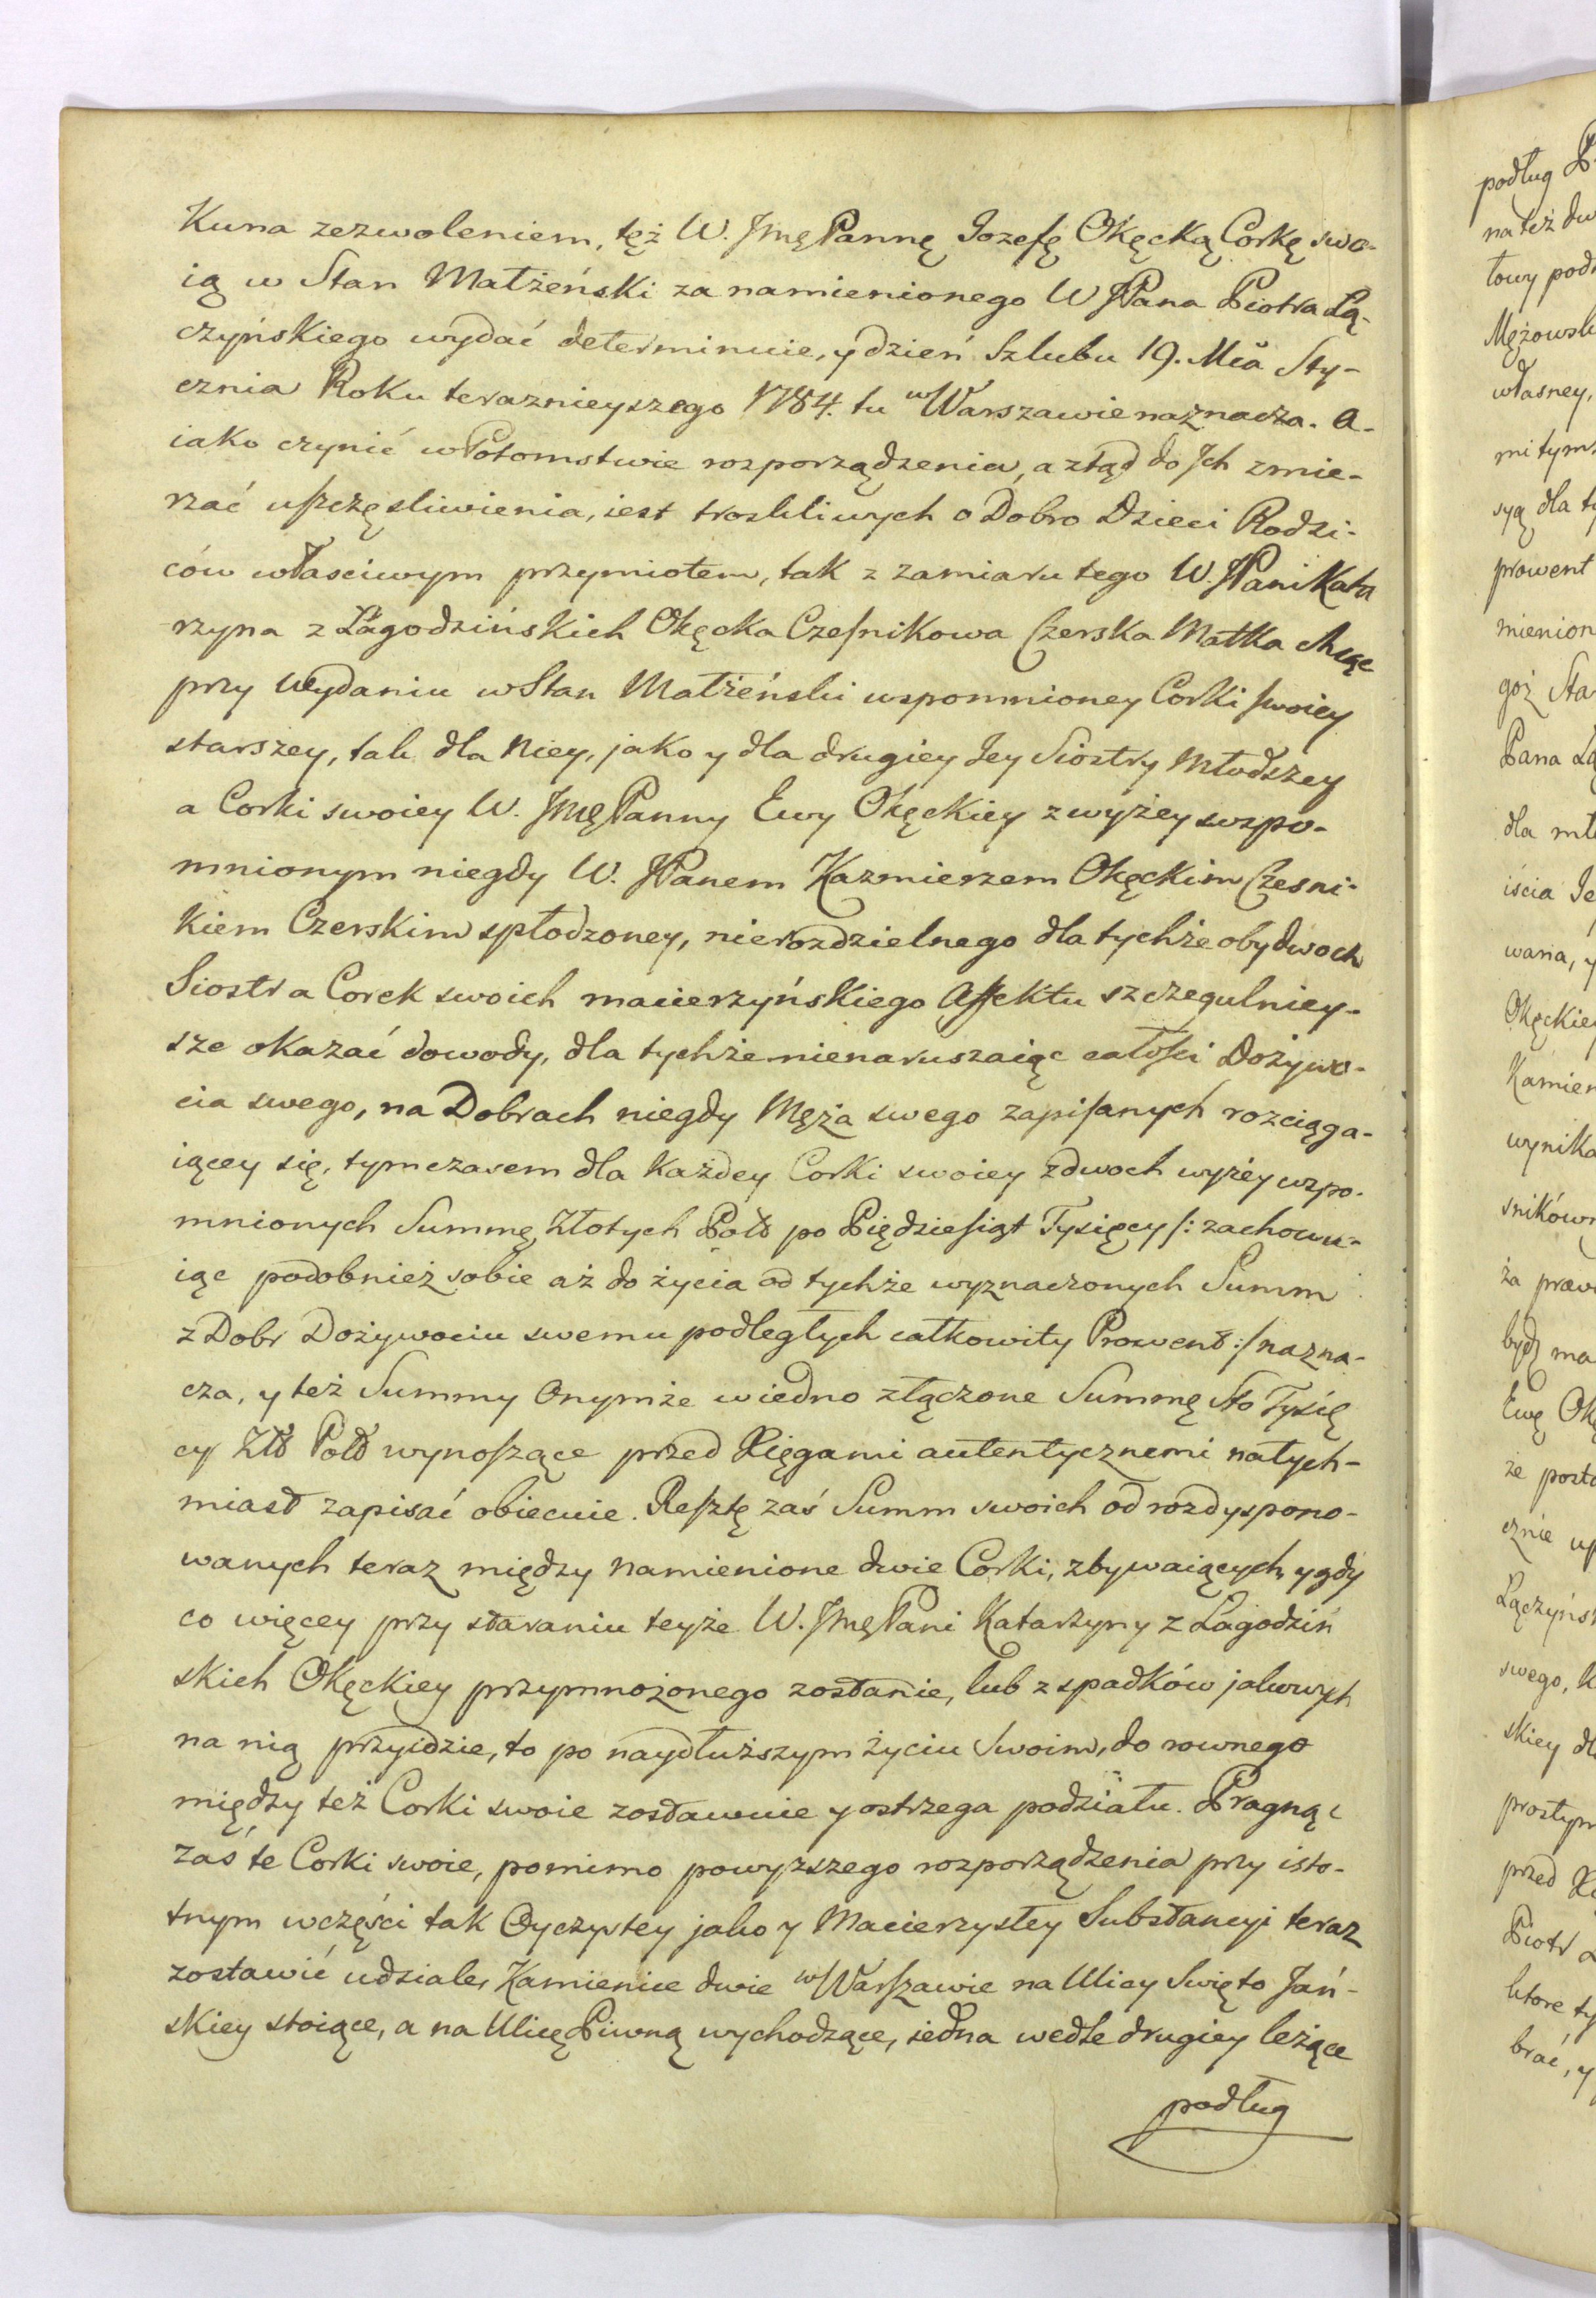 Kuna zezwoleniem, tęż W. JmęPannę Jozefę Okęcką Corkę swo-
ią w Stan Małżeński za namienionego W JPana Piotra Łą-
czyńskiego wydać determinuie, y dzień Szlubu 19. Mca Sty-
cznia Roku teraznieyszego 1784. tu w Warszawie naznacza. A-
iako czynić w Potomstwie rozporządzenia, a ztąd do Ich zmie-
rzać uszczęsliwienia, iest troskliwych o Dobro Dzieci Rodzi-
ców własciwym przymiotem, tak z zamiaru tego W. JPani Kata
rzyna z Łagodzińskich Okęcka Czesnikowa Czerska Matka chcąc
przy Wydaniu w Stan Małżeński wspomnioney Corki swoiey
starszey, tak dla Niey, jako y dla drugiey Jey Siostry Młodszey
a Corki swoiey W. JmęPanny Ewy Okęckiey z wyżey wspo-
mnionym niegdy W. JPanem Kazmierzem Okęckim Czesni-
kiem Czerskim spłodzoney, nierozdzielnego dla tychże obydwoch
Siostr a Corek swoich macierzyńskiego Affektu szczegulniey-
sze okazać dowody, dla tychże nienaruszaiąc całosci Dożywo-
cia swego, na Dobrach niegdy Męża swego zapisanych rozciąga-
iącey się, tymczasem dla każdey Corki swoiey z dwoch wyżey wspo-
mnionych Summę Złotych Pols po Pięćdziesiąt Tysięcy /: zachowu-
iąc podobnież sobie aż do życia od tychże wyznaczonych Summ
z Dobr Dożywociu swemu podległych całkowity Prowent :/ nazna-
cza, y też Summy Onymże w iedno złączone Summę Sto Tysię
cy Złł Poll wynoszące przed Xięgami autentycznemi natych-
miast zapisać obiecuie. Resztę zaś Summ swoich od rozdyspono-
wanych teraz między namienione dwie Corki, zbywaiących, y gdy
co więcey przy staraniu teyże W. JmęPani Katarzyny z Łagodziń
skich Okęckiey przymnożonego zostanie, lub z spadków jakowych
na nią przyidzie, to po naydłuższym życiu Swoim, do rownego
między też Corki swoie zostawuie y ostrzega podziału. Pragnąc
zaś te Corki swoie, pomimo powyższego rozporządzenia przy isto-
tnym w części tak Oyczystey jako y Macierzystey Substancyi teraz
zostawić udziale, Kamienice dwie w Warszawie na Ulicy Swięto Jań-
skiey stoiące, a na Ulicę Piwną wychodzące, iedna wedle drugiey leżące
podług
podług
na też
Mężowsk
własney,
mi tym
syą dla
prowent
mienion
goż Sta
Pana Łą
dla mł
iścia Je
wana, y
Okęckiey
Kamien
wynika
snikówn
ża praw
bydź ma
Ewę Ok
że posta
cznie
Łączyńs
swego,
skiey dl
prostym
przed
Piotr
ktore ty
brać, y